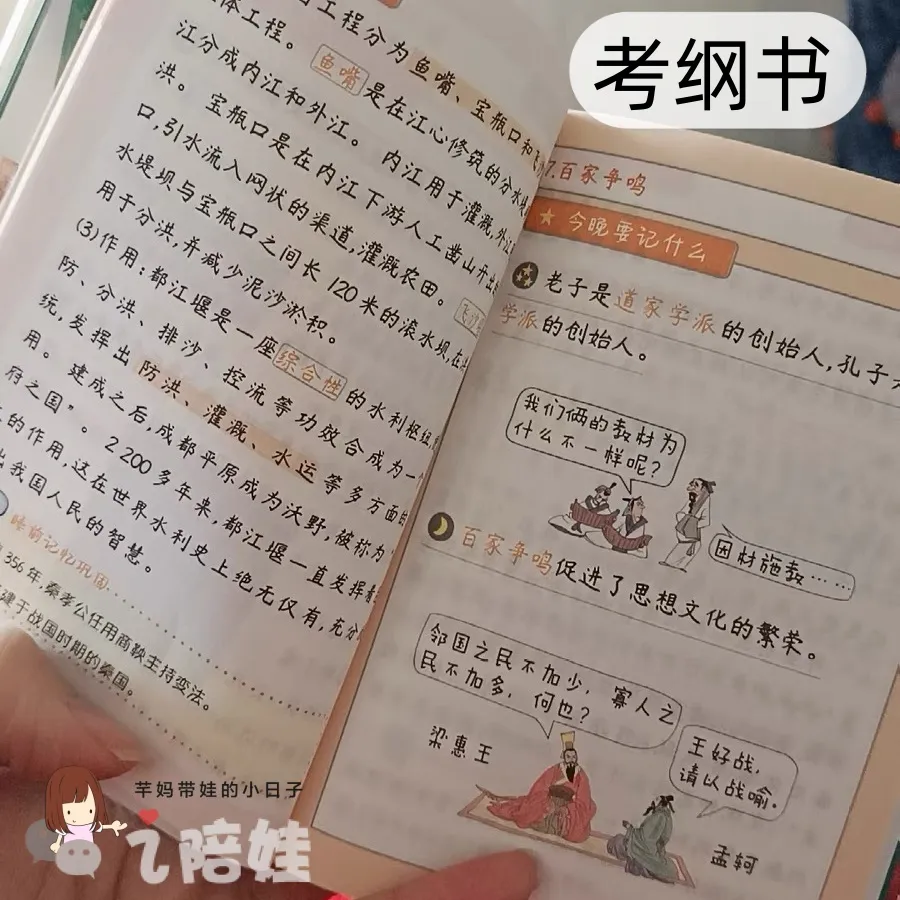 考纲书
工程分为鱼嘴、宝瓶口和飞
体工程。
鱼嘴是在江心修筑的分水堤
江分成内江和外江。 内江用于灌溉,外江
洪。 宝瓶口是在内江下游人工凿山开出
口,引水流入网状的渠道,灌溉农田。
水堤坝与宝瓶口之间长 120 米的滚水坝,在
用于分洪,并减少泥沙淤积。
(3)作用:都江堰是一座综合性的水利枢纽
防、分洪、排沙、控流等功效合成为一
统,发挥出防洪、灌溉、水运等多方面的
用。 建成之后,成都平原成为沃野,被称为
府之国”。 2 200 多年来,都江堰一直发挥着
的作用,这在世界水利史上绝无仅有,充分
出我国人民的智慧。
睡前记忆巩固
356 年秦孝公任用商鞅主持变法。
建于战国时期的秦国。
7.百家争鸣
今晚要记什么
老子是道家学派的创始人,孔子
学派的创始人。
我们俩的教材为
什么不一样呢?
因材施教……
百家争鸣促进了思想文化的繁荣。
邻国之民不加少, 寡人之
民不加多, 何也?
梁惠王
王好战,
请以战喻.
孟轲
芊妈带娃的小日子
陪娃